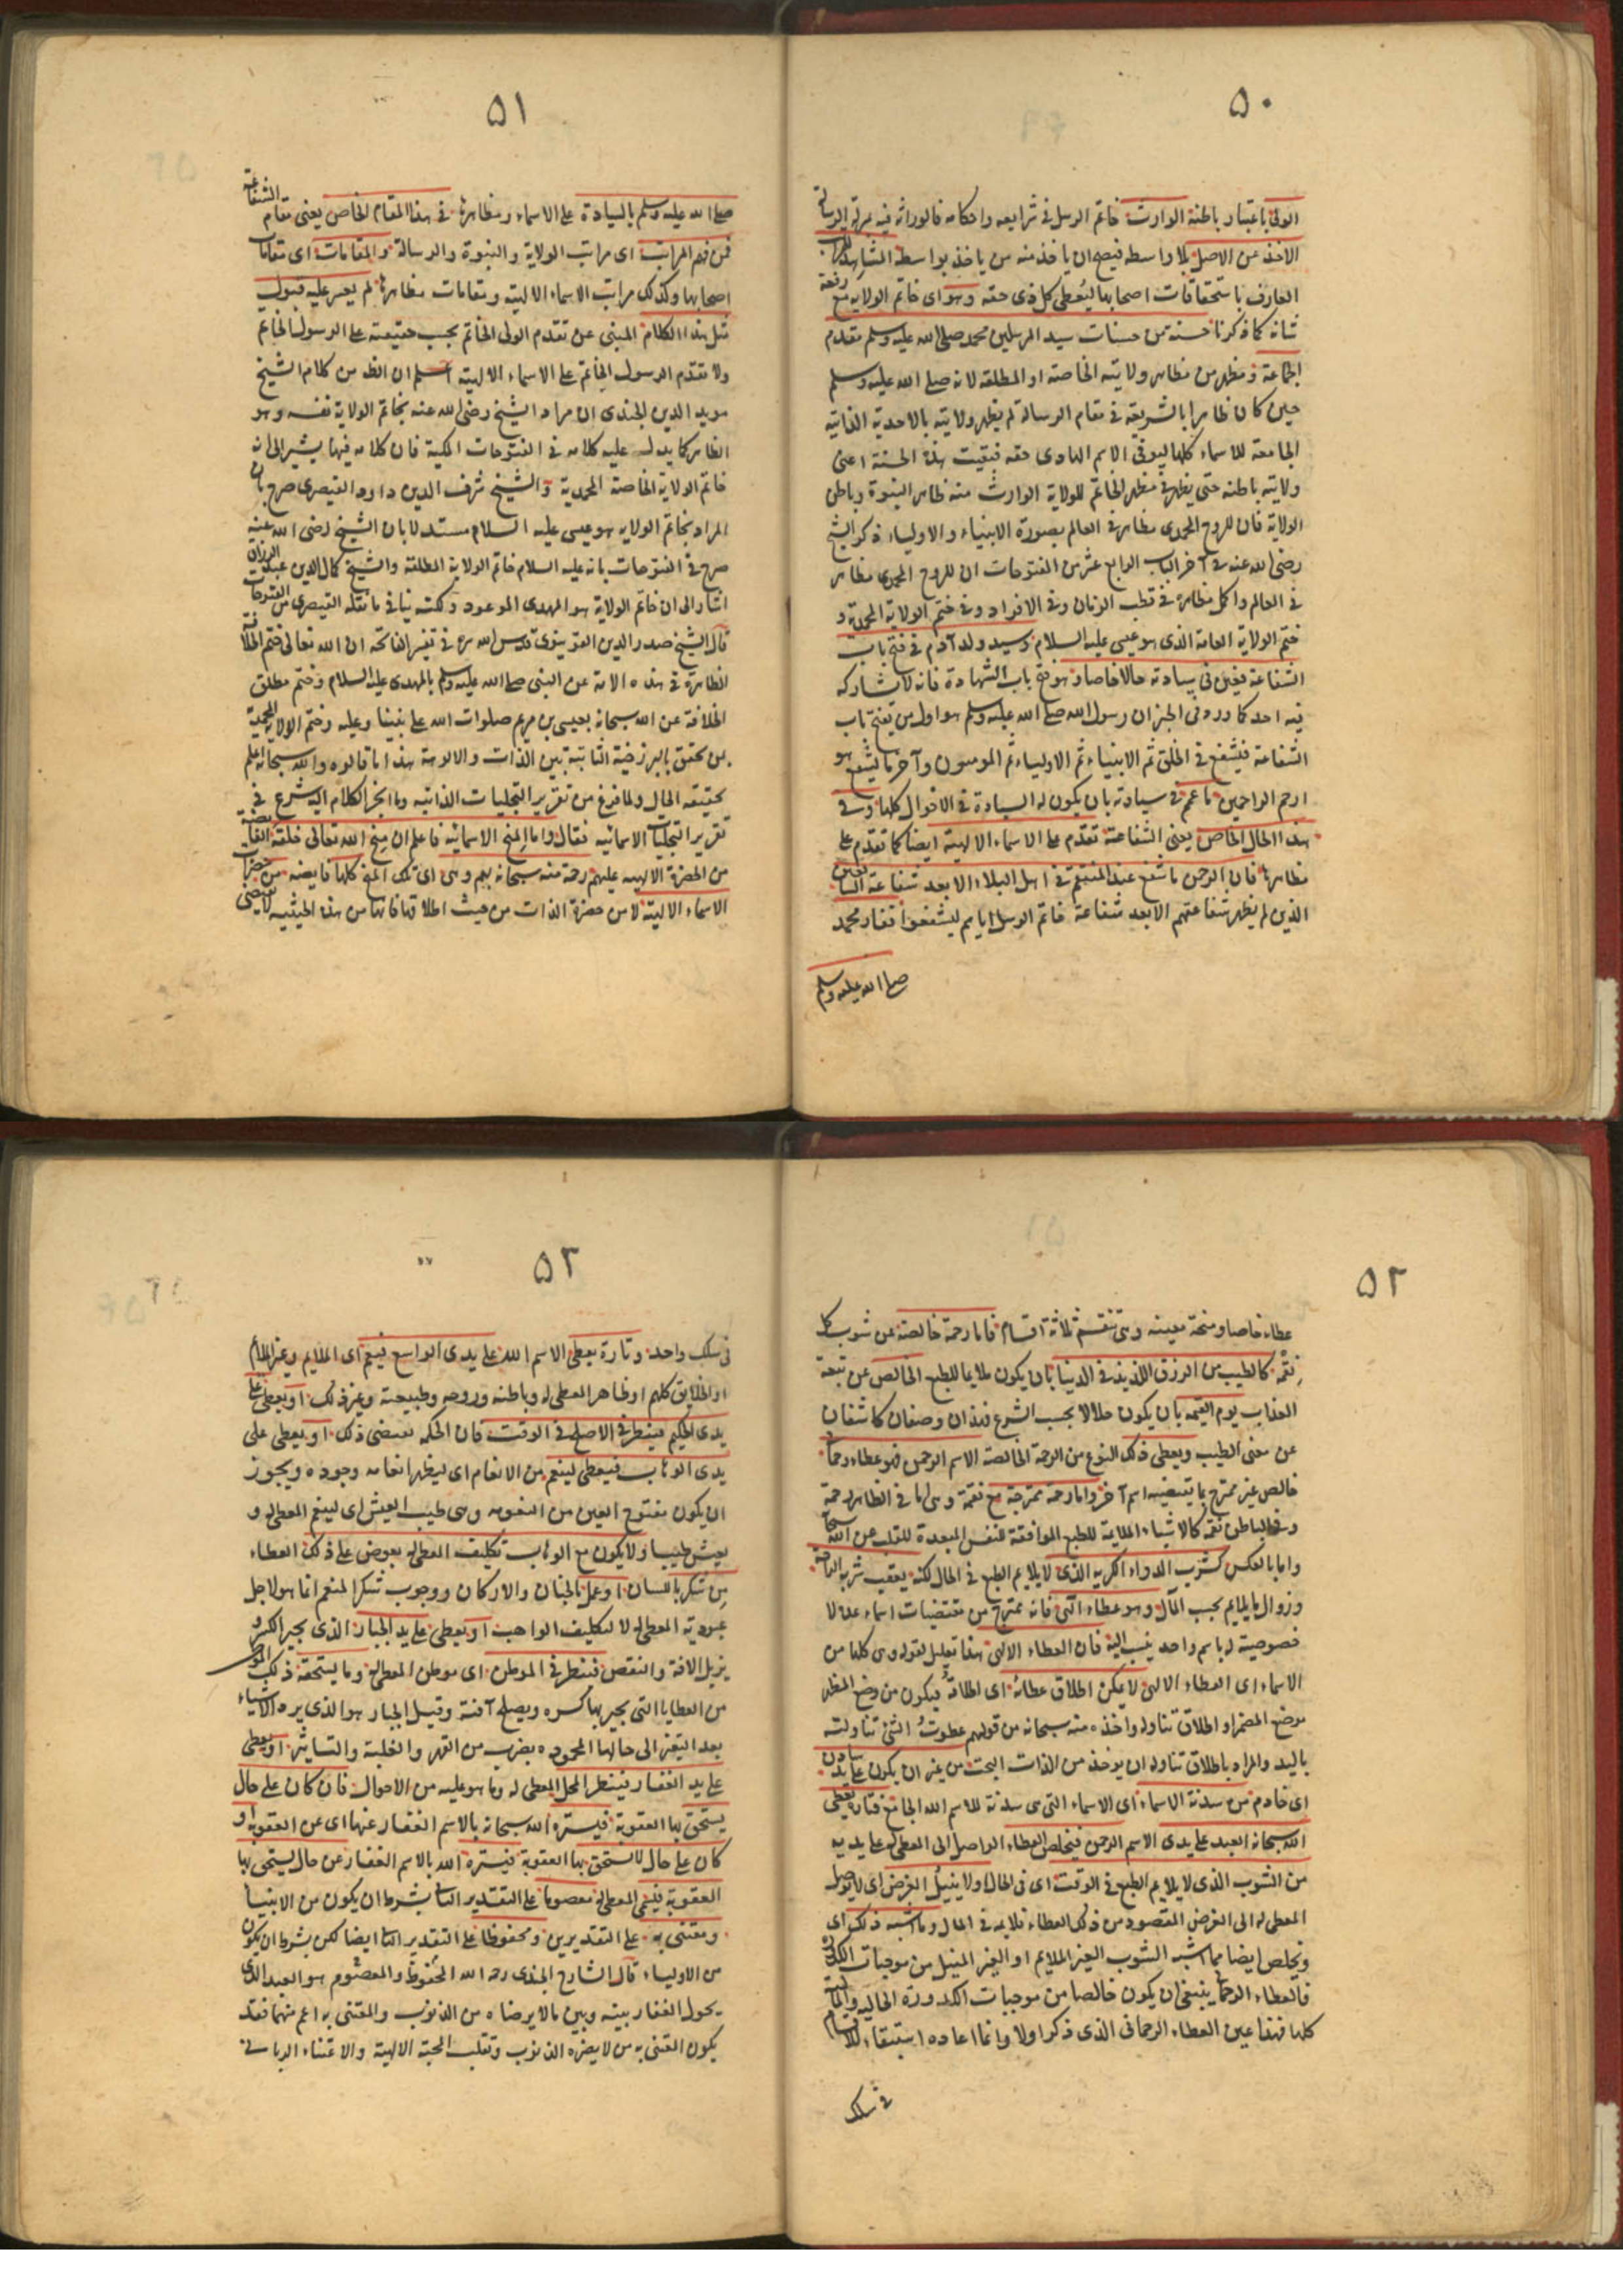 ٥٠
الولى باعتبار باطنة الوارث خاتم الرسل فى شرايعه واحكامه فالوراثة فيه بمنزلة الرسالة
الاخذ عن الاصل بلا واسطه فيصح ان ياخذ منه من ياخذ بواسطة المشاهد للمراتب
العارف باستحقاقات اصحابها ليعطى كل ذى حقه وهو اى خاتم الولايه مع رفعة
شانه كما ذكرنا حسنة من حسنات سيد المرسلين محمد صلى الله عليه وسلم مقدم
الجماعة ومظهر من مظاهر ولايته الخاصة او المطلقه لانه صلى الله عليه وسلم
حين كان ظاهرا بالشريعة فى مقام الرسالة لم يظهر ولايته بالاحدية الذاتية
الجامعة للاسماء كلها ليوفى الاسم الهادى حقه فبقيت هذه الحسنة اعنى
ولايته باطنه حتى يظهر فى مظهر الخاتم للولاية الوارث منه ظاهر النبوة وباطن
الولاية فان للروح المحمدى مظاهر فى العالم بصورة الانبياء والاولياء ذكر الشيخ
رضى الله عنه فى آخر الباب الرابع عشر من الفتوحات ان للروح المحمدى مظاهر
فى العالم واكمل مظاهره فى قطب الزمان وفى الافراد وفى ختم الولاية المحمدية و
ختم الولاية العامة الذى هو عيسى عليه السلام وسيد ولد آدم فى فتح باب
الشفاعة فعين فى سيادته حالا خاصا وهو فتح باب الشهادة فانه لا يشاركه
فيه احد كما ورد فى الخبر ان رسول الله صلى الله عليه وسلم هو اول من يفتح باب
الشفاعة فيشفع فى الخلق ثم الانبياء ثم الاولياء ثم المومنون وآخر ما يشفع هو
ارحم الراحمين ما عمم فى سيادته بان يكون له السيادة فى الاحوال كلها وفى
هذا الحال الخاص يعنى الشفاعة تقدم على الاسماء الالهية ايضا كما تقدم على
مظاهرها فان الرحمن ما شفع عند المنتقم فى اهل البلاء الا بعد شفاعة الشافعين
الذين لم يظهر شفاعتهم الا بعد شفاعة خاتم الرسل اياهم ليشفعوا ففاز محمد
صلى الله عليه وسلم
٥١
صلى الله عليه وسلم بالسيادة على الاسماء ومظاهرها فى هذا المقام الخاص يعنى مقام الشفاعة
فمن فهم المراتب اى مراتب الولاية والنبوة والرسالة والمقامات اى مقامات
اصحابها وكذلك مراتب الاسماء الالهية ومقامات مظاهرها لم يعسر عليه قبول
مثل هذا الكلام المبنى عن تقدم الولى الخاتم بحسب حقيقته على الرسول الخاتم
ولا تقدم الرسول الخاتم على الاسماء الالهية اعلم ان الظ من كلام الشيخ
مويد الدين الجندى ان مراد الشيخ رضى الله عنه بخاتم الولاية نفسه وهو
الظاهر كما يدل عليه كلامه فى الفتوحات المكية فان كلامه فيها يشير الى انه
خاتم الولاية الخاصة المحمدية والشيخ شرف الدين داود القيصرى صرح بان
المراد بخاتم الولاية هو عيسى عليه السلام مستدلا بان الشيخ رضى الله عنه
صرح فى الفتوحات بانه عليه السلام خاتم الولاية المطلقة والشيخ كمال الدين عبد الرزاق
اشار الى ان خاتم الولاية هو المهدى الموعود ولكنه ينافى ما نقله القيصرى من الفتوحات
قال الشيخ صدر الدين القونيوى قدس الله سره فى تفسير الفاتحة ان الله تعالى ختم الخلافة
الظاهرة فى هذه الامة عن النبى صلى الله عليه وسلم بالمهدى عليه السلام وختم مطلق
الخلافة عن الله سبحانه بعيسى بن مريم صلوات الله على نبينا وعليه وختم الولاية المحمدية
بمن تحقق بالبرزخية الثابتة بين الذات والالوهة هذا ما قالوه والله سبحانه اعلم
بحقيقة الحال ولما فرغ من تقرير التجليات الذاتيه وما انجر الكلام اليه شرع فى
تقرير التجليات الاسمائيه فقال واما المنح الاسمائيه فاعلم ان منح الله تعالى خلقه الفايضة
من الحضرة الالهيه عليهم رحمة منه سبحانه بهم وهى اى تلك المنح كلها فايضه من حضرات
الاسماء الالهية لا من حضرة الذات من حيث اطلاقها فانها من هذه الحيثيه لا يقتضى
٥٢
عطاء خاصا ومنحة معينه وهى تنقسم ثلاثة اقسام فاما رحمة خالصة عن شوب كل
نقمة كالطيب من الرزق اللذيذ فى الدنيا بان يكون ملايما للطبع الخالص عن تبعة
العذاب يوم القيمة بان يكون حلالا بحسب الشرع فهذان وصفان كاشفان
عن معنى الطيب ويعطى ذلك النوع من الرحمة الخالصة الاسم الرحمن فهو عطاء رحمانى
خالص غير ممتزج بما يقتضيه اسم آخر واما رحمة ممتزجة مع نقمة وهى اما فى الظاهر رحمة
وفى الباطن نقمة كالاشياء الملايمة للطبع الموافقة للنفس المبعدة للقلب عن الله سبحانه
واما بالعكس كشرب الدواء الكريه الذى لا يلايم الطبع فى الحال لكنه يعقب شربه الراحة
وزوال ما لا يلايم بحسب المآل وهو عطاء الهى فانه ممتزج من مقتضيات اسماء عدة لا
خصوصية له باسم واحد ينسب اليه فان العطاء الالهى هذا تعليل لقوله وهى كلها من
الاسماء اى العطاء الالهى لا يمكن اطلاق عطائه اى اطلاقه فيكون من وضع المظهر
موضع المضمر او اطلاق تناوله واخذه منه سبحانه من قولهم عطوت الشئ تناولته
باليد والمراد باطلاق تناوله ان يوخذ من الذات البحت من غير ان يكون على يد سادن
اى خادم من سدنة الاسماء اى الاسماء التى هى سدنة للاسم الله الجامع فتارة يعطى
الله سبحانه العبد على يدى الاسم الرحمن فيخلص العطاء الواصل الى المعطى له على يديه
من الشوب الذى لا يلايم الطبع فى الوقت اى فى الحال ولا ينيل الغرض اى لا يوصل
المعطى له الى الغرض المقصود من ذلك العطاء فلايمه فى المال وما اشبه ذلك اى
ويخلص ايضا مما اشبه الشوب الغير الملايم او الغير المنيل من موجبات الكدورة
فالعطاء الرحمانى ينبغى ان يكون خالصا من موجبات الكدورة الحالية والمالية
كلها فهذا عين العطاء الرحمانى الذى ذكر اولا وانما اعاده استيفاء للاقسام
فى سلك
٥٣
فى سلك واحد وتارة يعطى الاسم الله على يدى الواسع فيعم اى الملايم وغير الملايم
او الخلايق كلهم او ظاهر المعطى له وباطنه وروحه وطبيعته وغير ذلك او يعطى على
يدى الحكيم فينظر فى الاصلح فى الوقت فان الحكمة تقتضى ذلك او يعطى على
يدى الوهاب فيعطى لينعم من الانعام اى ليظهر انعامه وجوده ويجوز
ان يكون مفتوح العين من النعومه وهى طيب العيش اى لينعم المعطى له و
يعيش طيبا ولا يكون مع الوهاب تكليف المعطى له بعوض على ذلك العطاء
من شكر باللسان او عمل بالجنان والاركان ووجوب شكر المنعم انما هو لاجل
عبودية المعطى له لا لتكليف الواهب او يعطى على يد الجبار الذى يجبر الكسر و
يزيل الافة والنقص فينظر فى الموطن اى موطن المعطى له وما يستحقه ذلك الموطن
من العطايا التى يجبر بها كسره ويصلح آفته وقيل الجبار هو الذى يرد الاشياء
بعد التغير الى حالها المحمودة بضرب من القهر والغلبة والتاثير او يعطى
على يد الغفار فينظر المحل المعطى له وما هو عليه من الاحوال فان كان على حال
يستحق بها العقوبة فيستره الله سبحانه بالاسم الغفار عنها اى عن العقوبة او
كان على حال لا يستحق بها العقوبة فيستره الله بالاسم الغفار عن حال يستحق بها
العقوبة فيسمى المعطى له معصوما على التقدير الثا بشرط ان يكون من الانبيا
ومعتنى به على التقديرين ومحفوظا على التقدير الثا ايضا لكن بشرط ان يكون
من الاولياء قال الشارح الجندى رحمه الله المحفوظ والمعصوم هو العبد الذى
يحول الغفار بينه وبين ما لا يرضاه من الذنوب والمعتنى به اعم منهما فقد
يكون المعتنى به من لا يضره الذنوب وتغلب المحبة الالهية والاعتناء الربانى